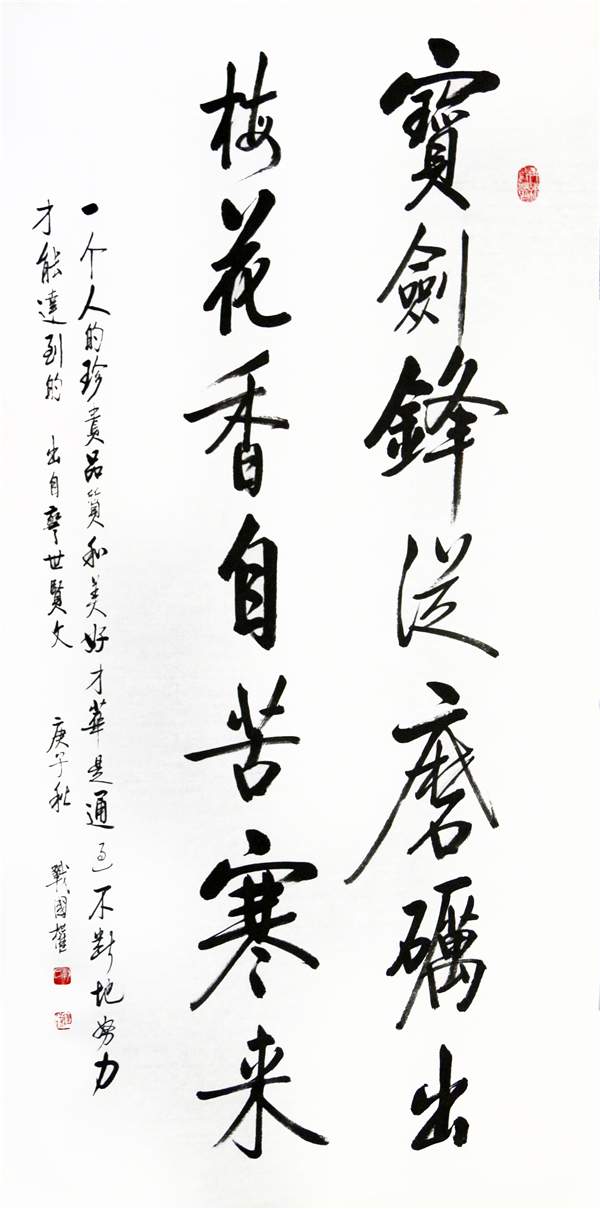 寶劍鋒從磨礪出
梅花香自苦寒来
一个人的珍貴品質和美好才華是通过不斷地努力
才能達到的 出自警世賢文 庚子秋 戰國權